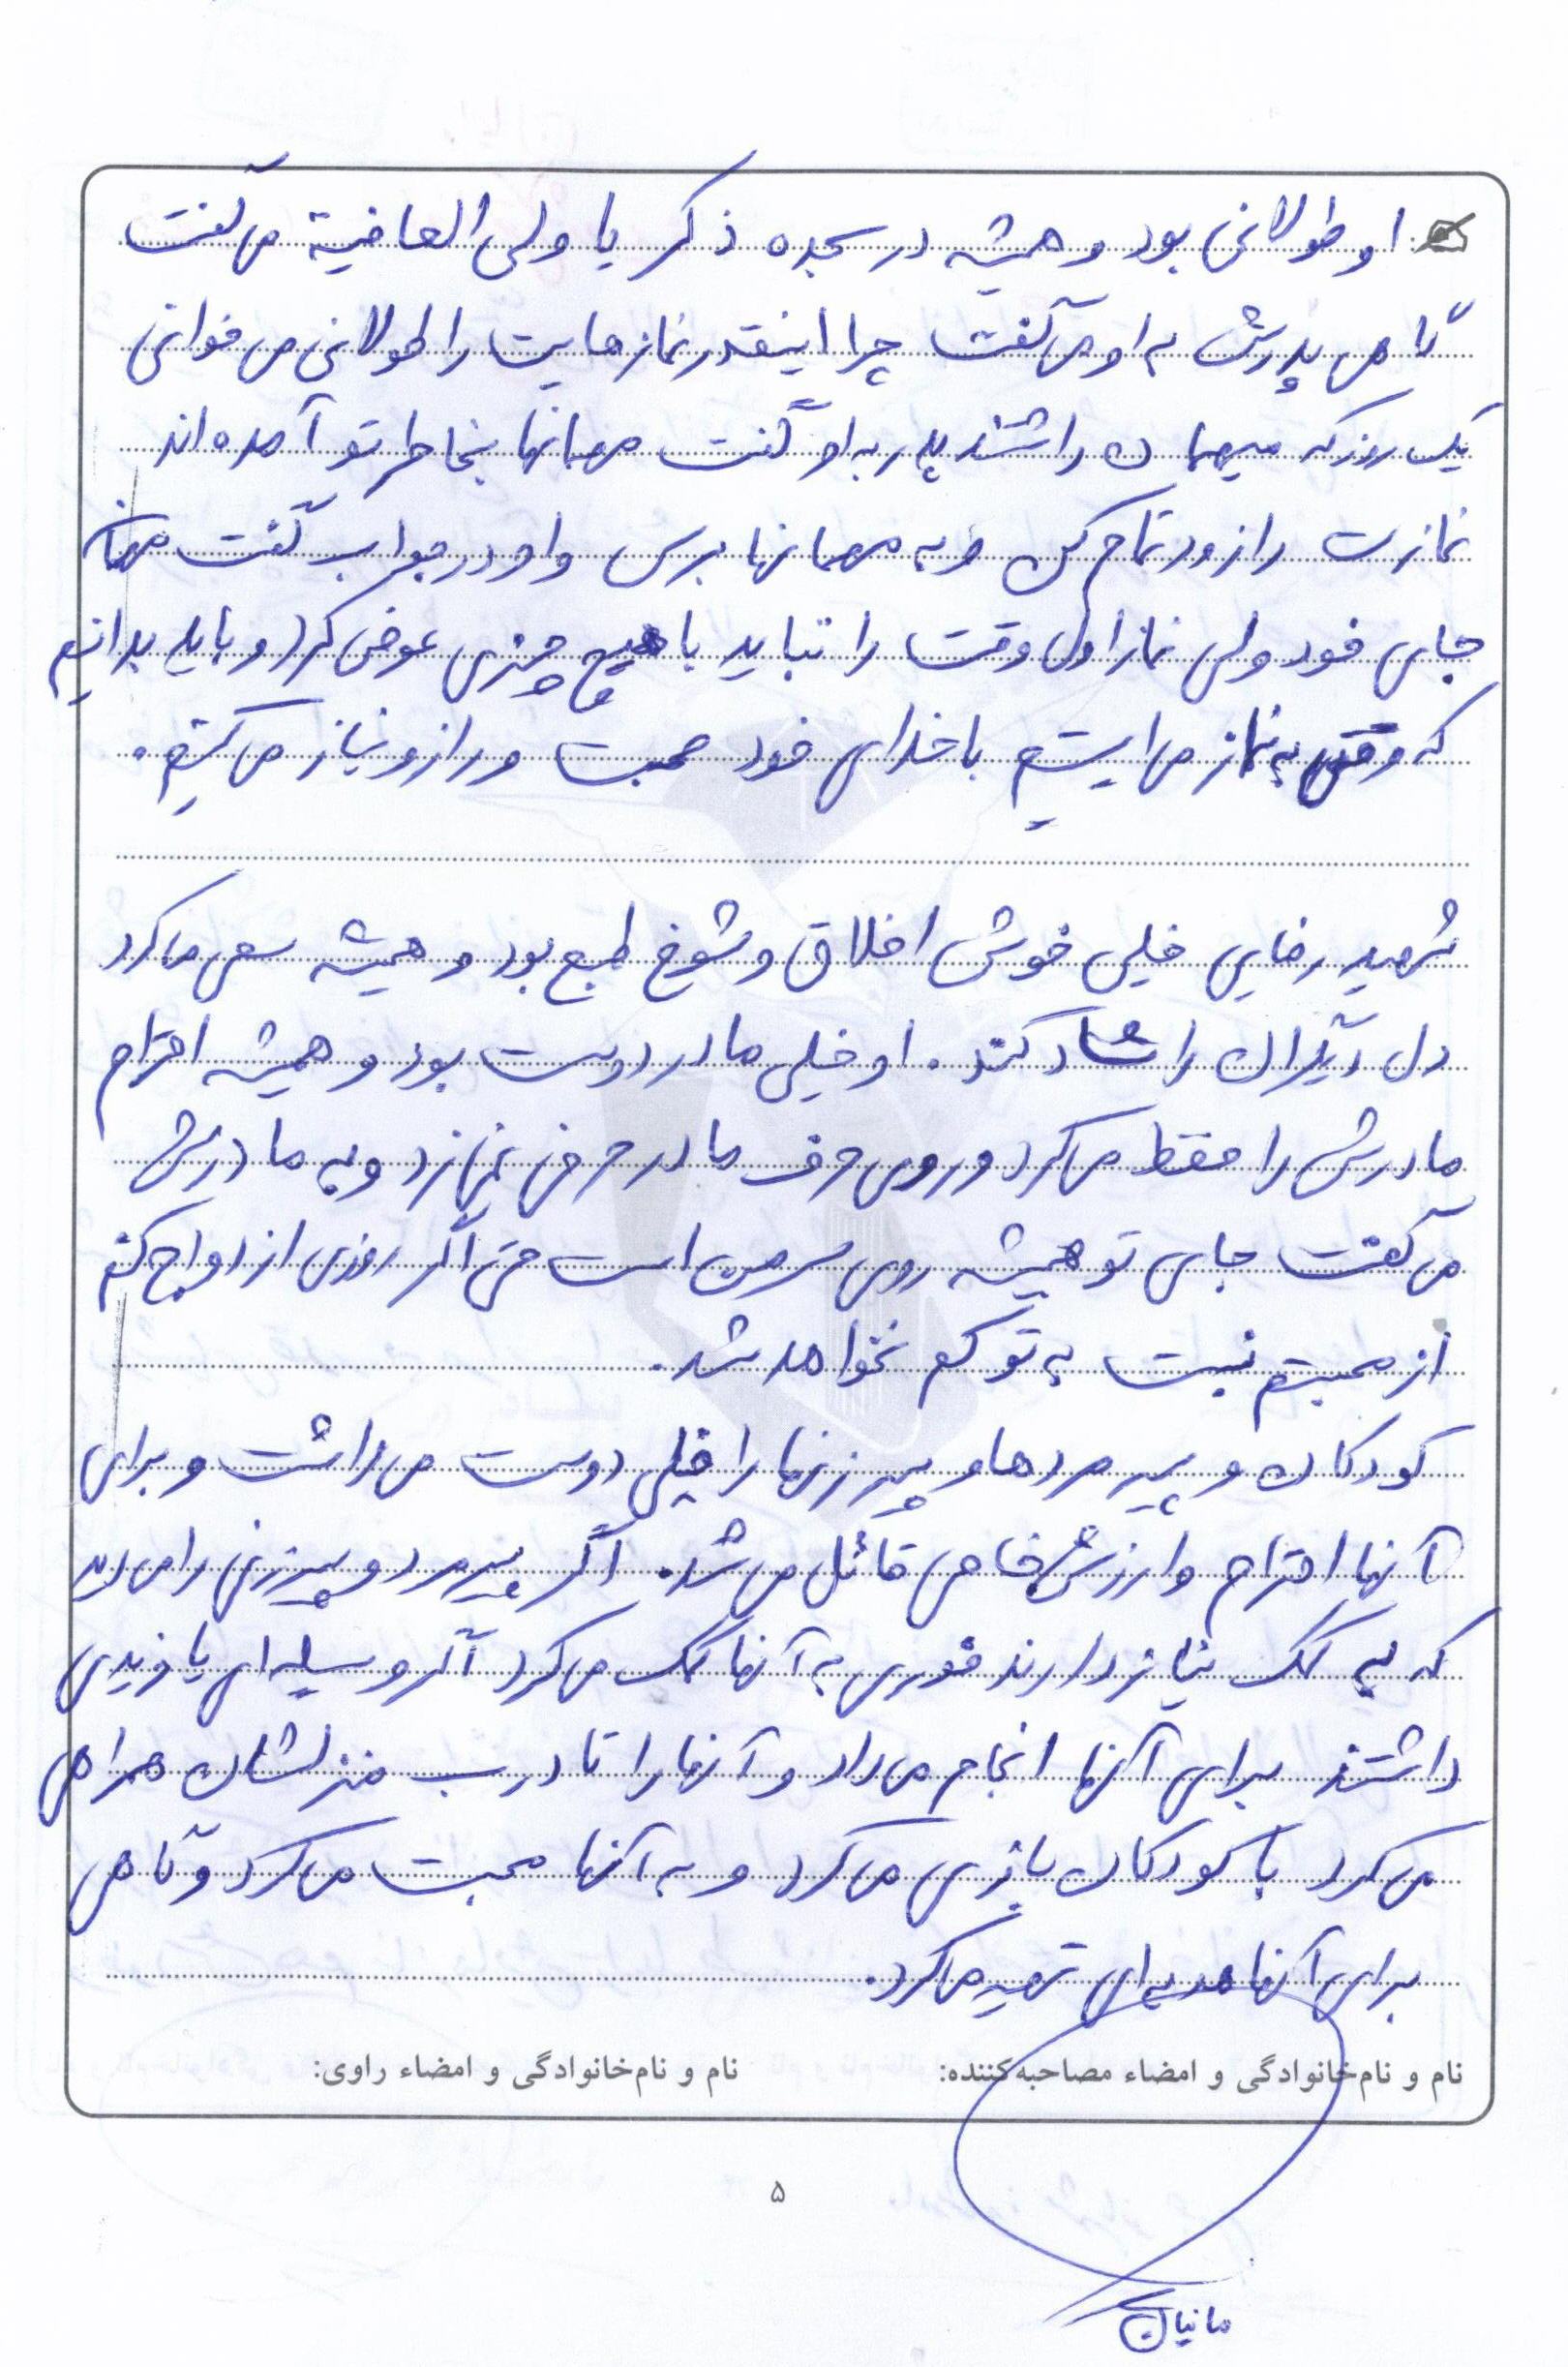 او طولانی بود و همیشه در سجده ذکر یا ولی العافیة می گفت
گاهی پدرش به او می گفت چرا اینقدر نمازهایت را طولانی می خوانی
یک روز که میهمان داشتند پدر به او گفت مهمانها بخاطر تو آمده اند
نمازت را زود تمام کن و به مهمانها برس و او در جواب گفت مهمان
جای خود ولی نماز اول وقت را نباید با هیچ چیزی عوض کرد و باید بدانیم
که وقتی به نماز می ایستیم با خدای خود صحبت و راز و نیاز می کنیم.
شهید رضایی خیلی خوش اخلاق و شوخ طبع بود و همیشه سعی می کرد
دل دیگران را شاد کند. او خیلی مادر دوست بود و همیشه احترام
مادرش را حفظ می کرد و روی حرف مادر حرفی نمی زد و به مادرش
می گفت جای تو همیشه روی سر من است حتی اگر روزی ازدواج کنم
از محبتم نسبت به تو کم نخواهد شد.
کودکان و پیرمردها و پیرزنها را خیلی دوست می داشت و برای
آنها احترام و ارزش خاصی قائل می شد. اگر پیرمرد و پیرزنی را می دید
که به کمک نیاز دارند فوری به آنها کمک می کرد اگر وسیله ای یا خریدی
داشتند برای آنها انجام می داد و آنها را تا درب منزلشان همراهی
می کرد با کودکان بازی می کرد و به آنها محبت می کرد و گاهی
برای آنها هدیه ای تهیه می کرد.
نام و نام‌خانوادگی و امضاء مصاحبه‌کننده: نام و نام‌خانوادگی و امضاء راوی:
۵